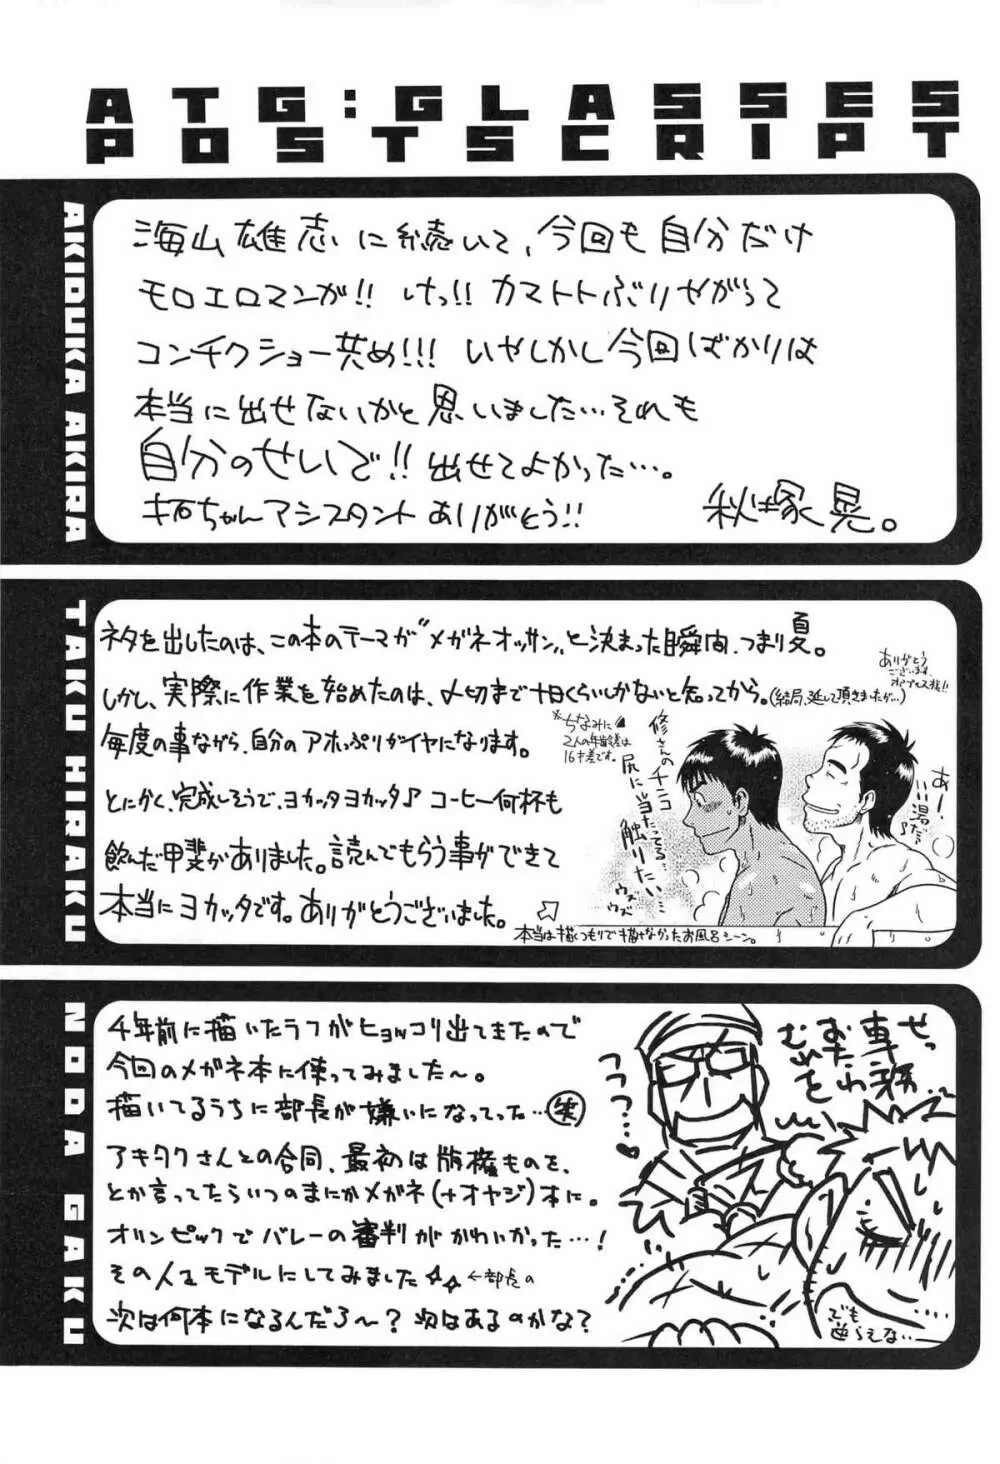 ATG:GLASSES
POSTSCRIPT
AKIDUKA AKIRA
海山雄志に続いて、今回も自分だけ
モロエロマンが!! けっ!! カマトトぶりやがって
コンチクショー共め!!! いやしかし今回ばかりは
本当に出せないかと思いました…それも
自分のせいで!! 出せてよかった…。
ちゃんアシスタントありがとう!!
秋塚晃。
TAKU HIRAKU
ネタを出したのは、この本のテーマが"メガネオッサン"と決まった瞬間、つまり夏。
しかし、実際に作業を始めたのは、〆切まで十日くらいしかないと知ってから。(結局、延して頂きましたが…)
毎度の事ながら、自分のアホっぷりがイヤになります。
とにかく、完成しそうで、ヨカッタヨカッタ♪ コーヒー何杯も
飲んだ甲斐がありました。読んでもらう事ができて
本当にヨカッタです。ありがとうございました。
ありがとう
ございます
※ちなみに
2人の年齢差は
16才差です。
修さんのチンコ
尻に当たってる…
触りたい…
ウズウズ
あ!
いい湯だぁ
本当は描くつもりで描けなかったお風呂シーン。
NODA GAKU
4年前に描いたラフがヒョッコリ出てきたので
今回のメガネ本に使ってみました〜。
描いてるうちに部長が嫌いになってった…(笑)
アキタクさんとの合同、最初は版権ものを、
とか言ってたらいつのまにかメガネ(+オヤジ)本に。
オリンピックでバレーの審判がかわいかった…!
その人をモデルにしてみました☆☆ ←部長の
次は何本になるんだろ〜? 次はあるのかな?
フフフ…♥
せっ
専務…
おたわ
むれを
でも
逆らえない…